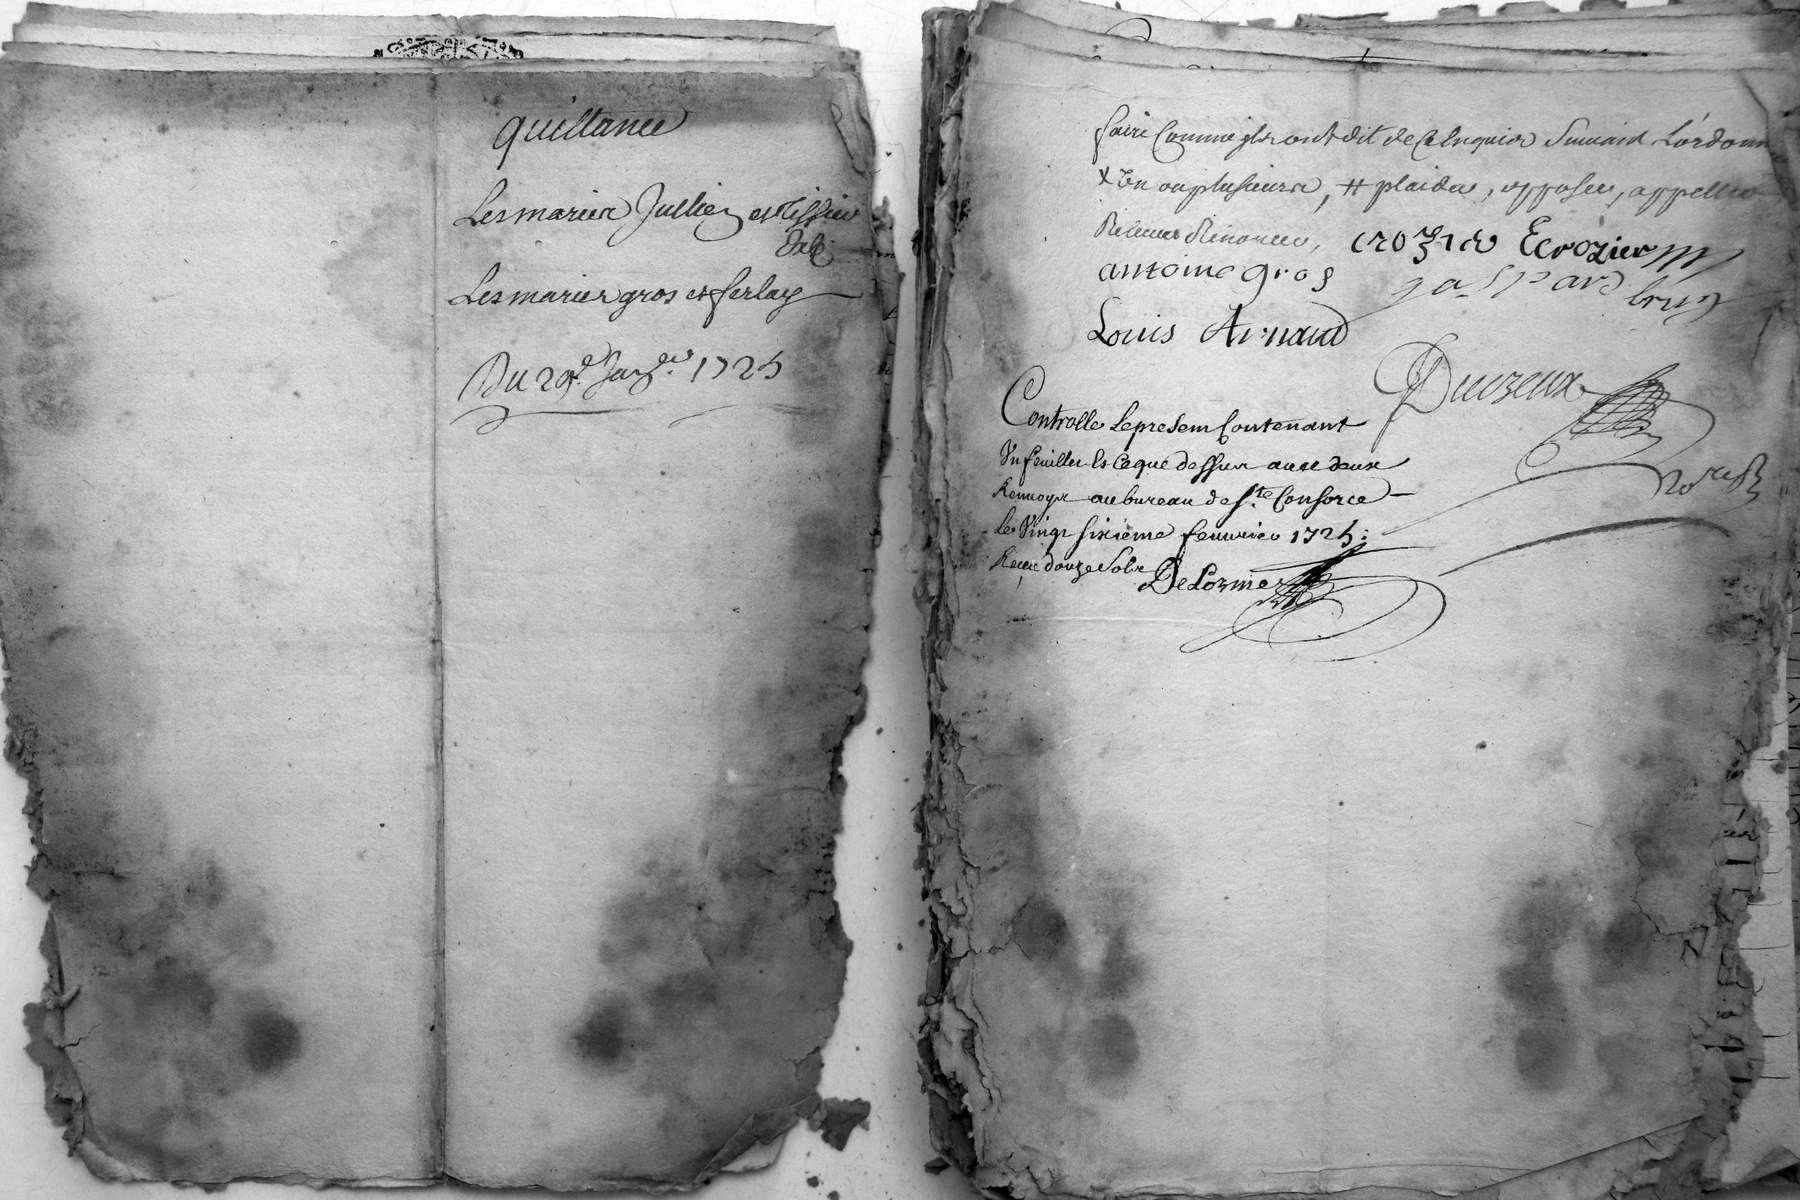 quittance
Les mariez Jullien et Tissieu
Les mariez gros et ferlay
Du 29e Janer. 1725
faire Comme ils ont dit de ce Enquier Suivant L'ordonn
un ou plusieurs, # plaider, opposer, appeller
Renoncer, crozier Ecrozier
antoine gros gaspard brun
Louis Arnaud
Duvzeux
Controlle le present Contenant
Un feuillet Et ce que dessus avec deux
Renvoys au bureau de ste Consorce
le Vingt sixieme feuvrier 1725:
Receu douze sols
DeLorme
nore Rl